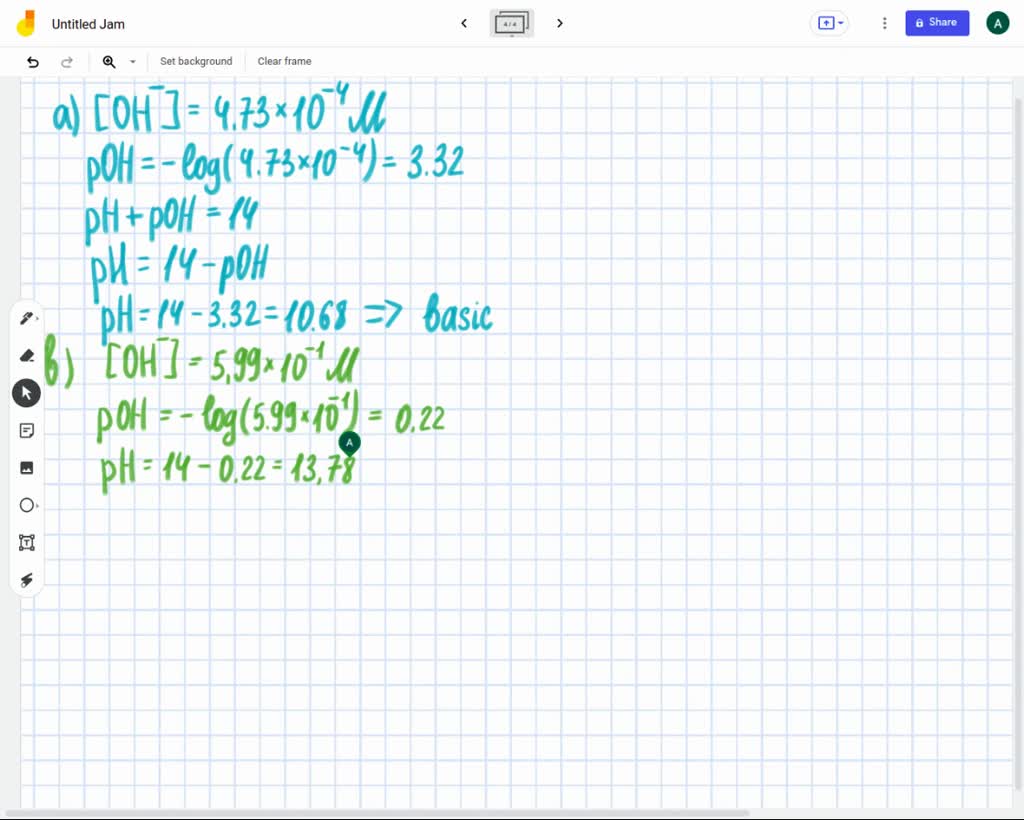 Untitled Jam
4 / 4
Share
A
Set background
Clear frame
a) [OH⁻] = 4.73×10⁻⁴ M
pOH = -log(4.73×10⁻⁴) = 3.32
pH + pOH = 14
pH = 14 - pOH
pH = 14 - 3.32 = 10.68 => basic
b) [OH⁻] = 5,99×10⁻¹ M
pOH = -log(5.99×10⁻¹) = 0.22
A
pH = 14 - 0.22 = 13,78
T